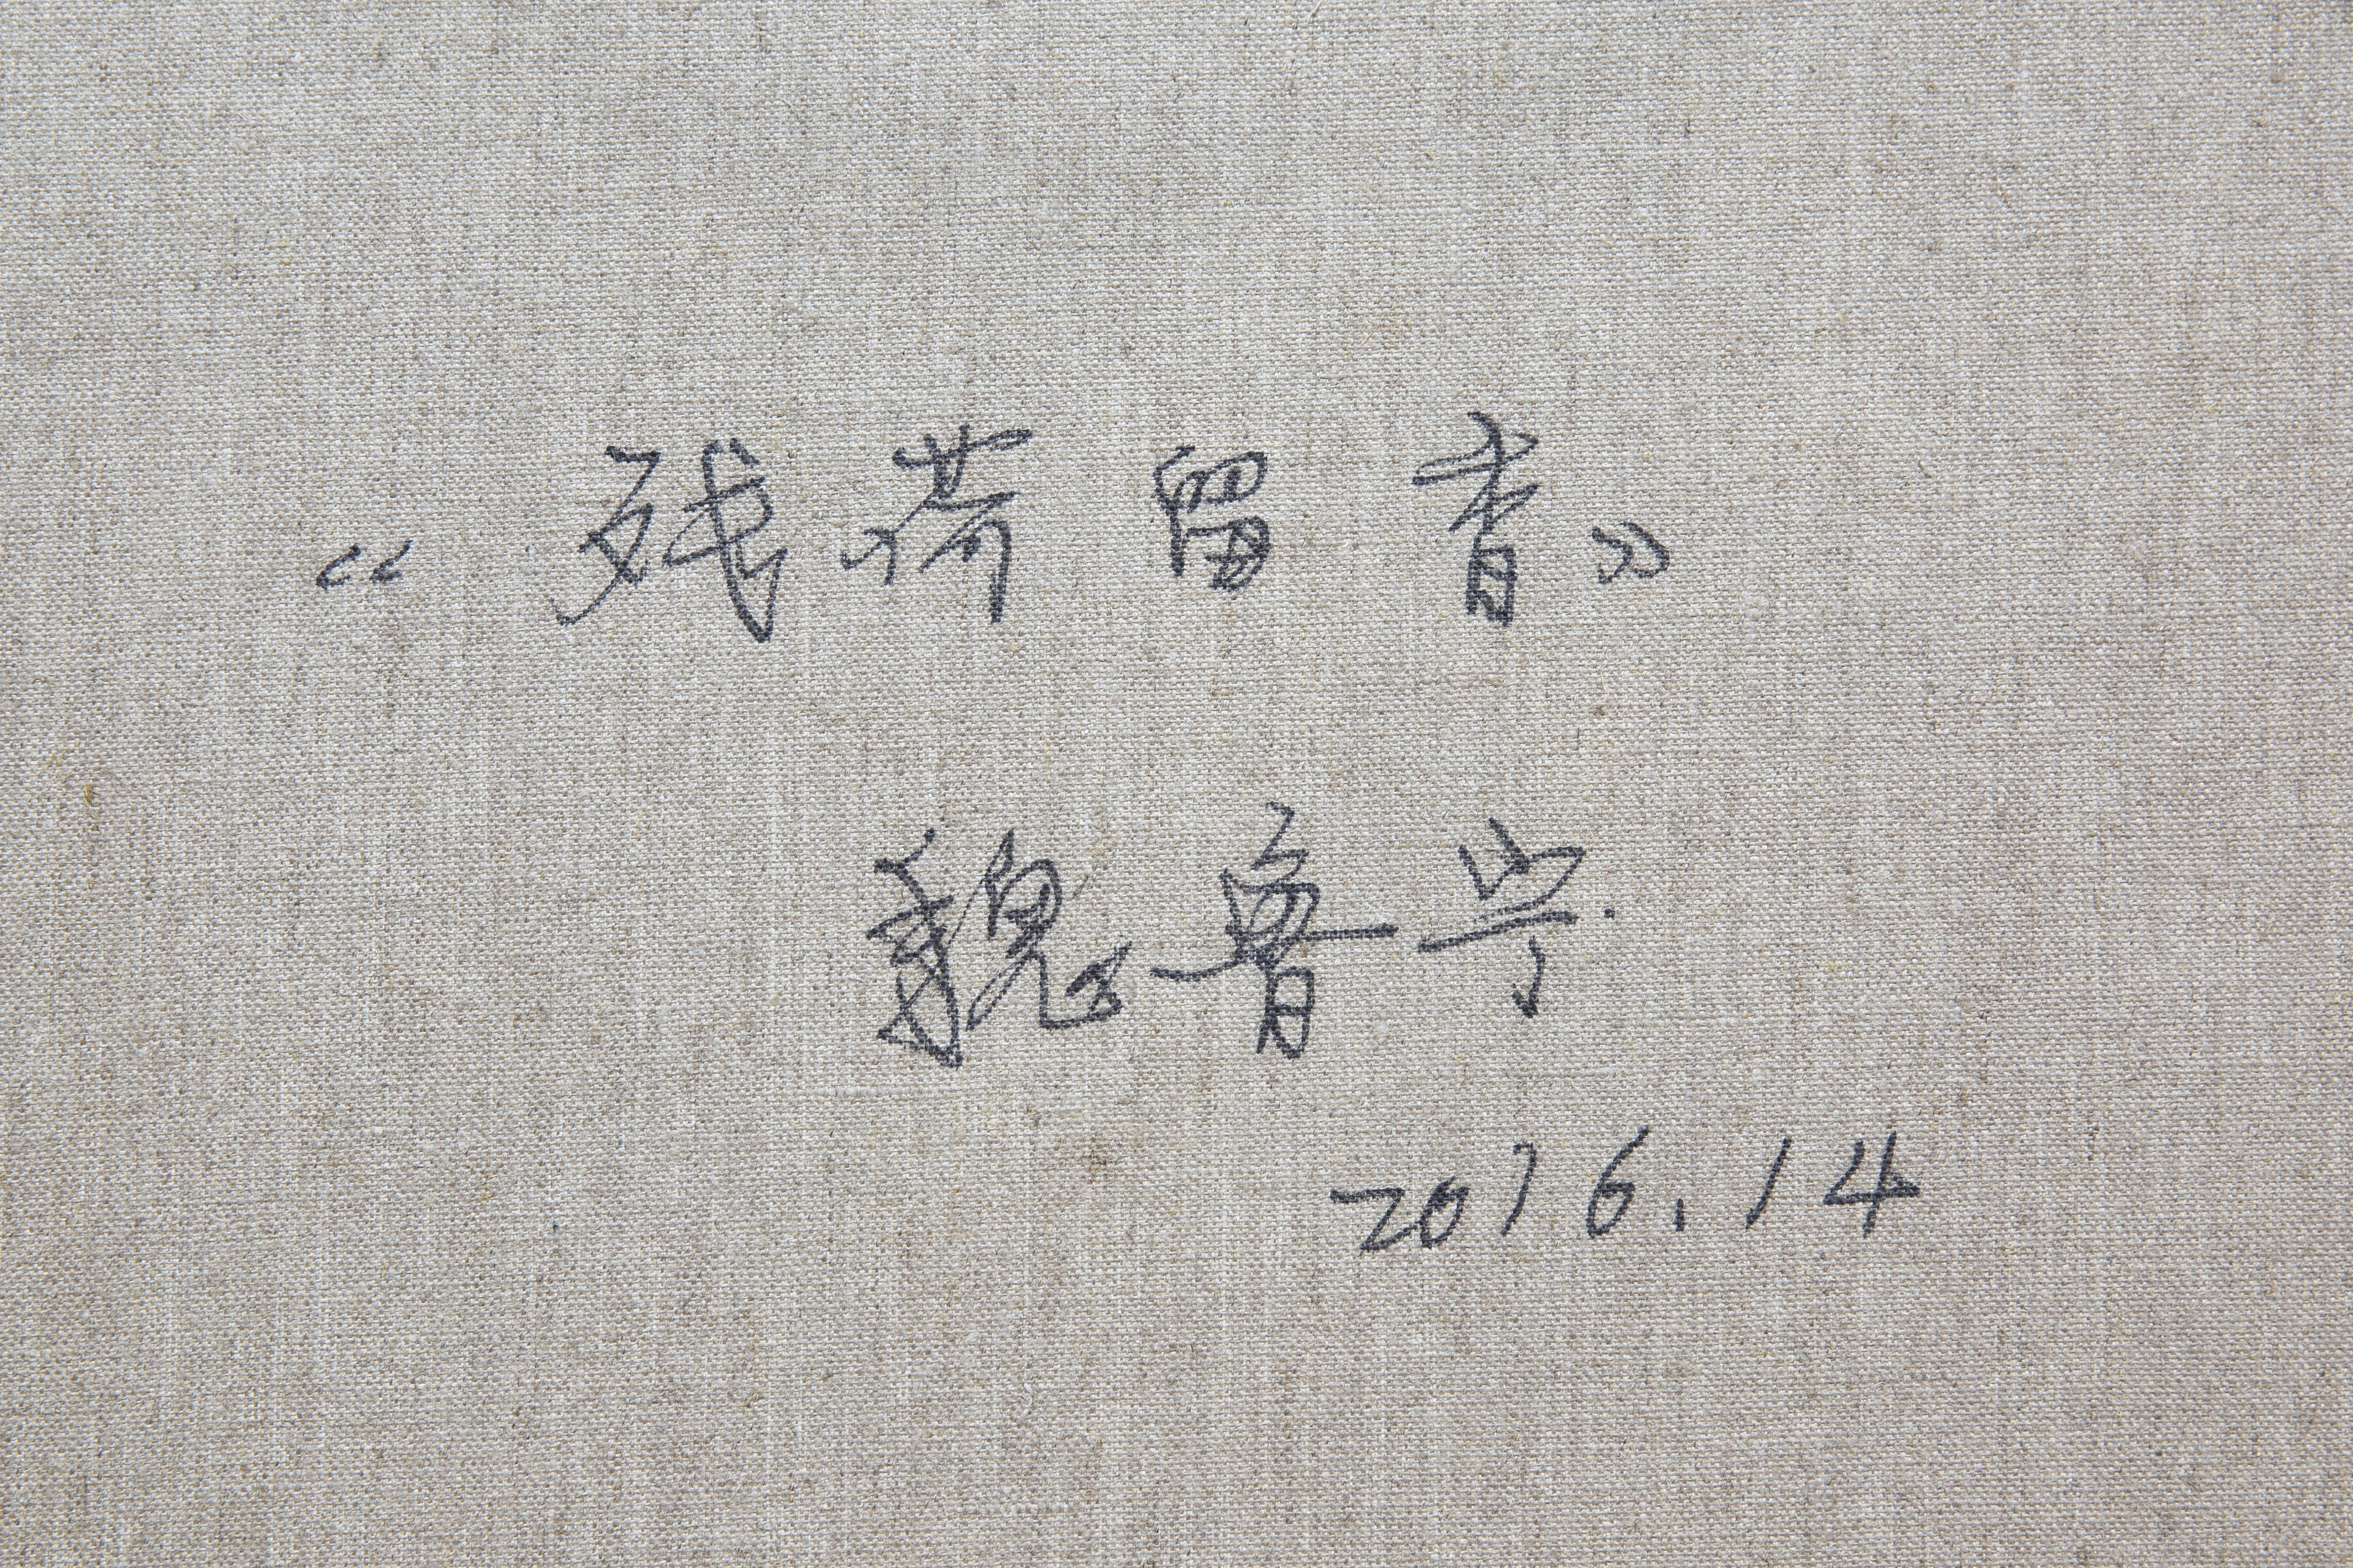 《残荷留香》
魏鲁宁.
2016.14